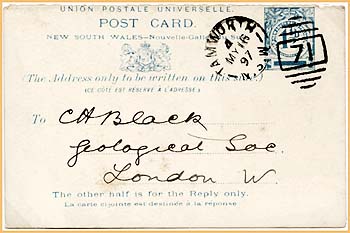 UNION POSTALE UNIVERSELLE.
POST CARD.
NEW SOUTH WALES—Nouvelle-Galles
TAMWORTH
4
MY 16
97
71
(The Address only to be written on this side.)
(CE CÔTÉ EST RÉSERVÉ À L'ADRESSE.)
To C H Black
Geological Soc.
London W.
The other half is for the Reply only.
La carte cijointe est destinée à la réponse